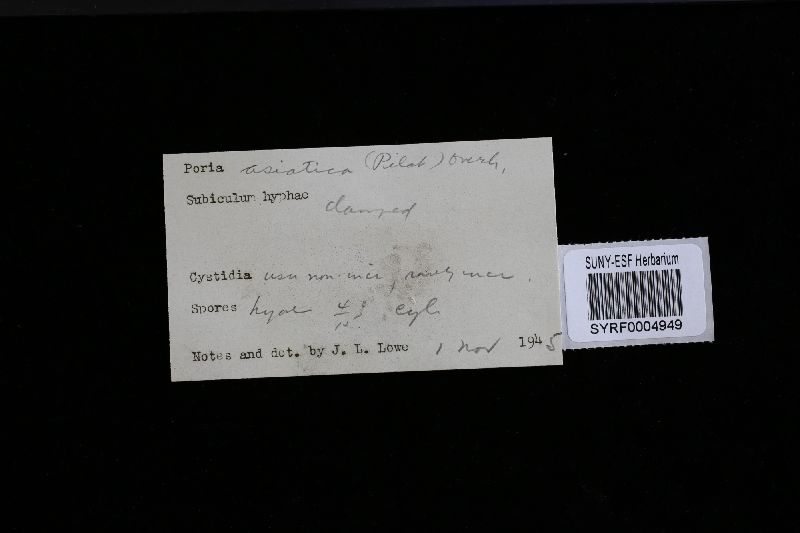 Poria asiatica (Pilat) Overh,
Subiculum hyphae clamped
Cystidia usu non-incr, rarely incr.
Spores hyal cyl
Notes and det. by J. L. Lowe 1 Nov 1945
SUNY-ESF Herbarium
SYRF0004949